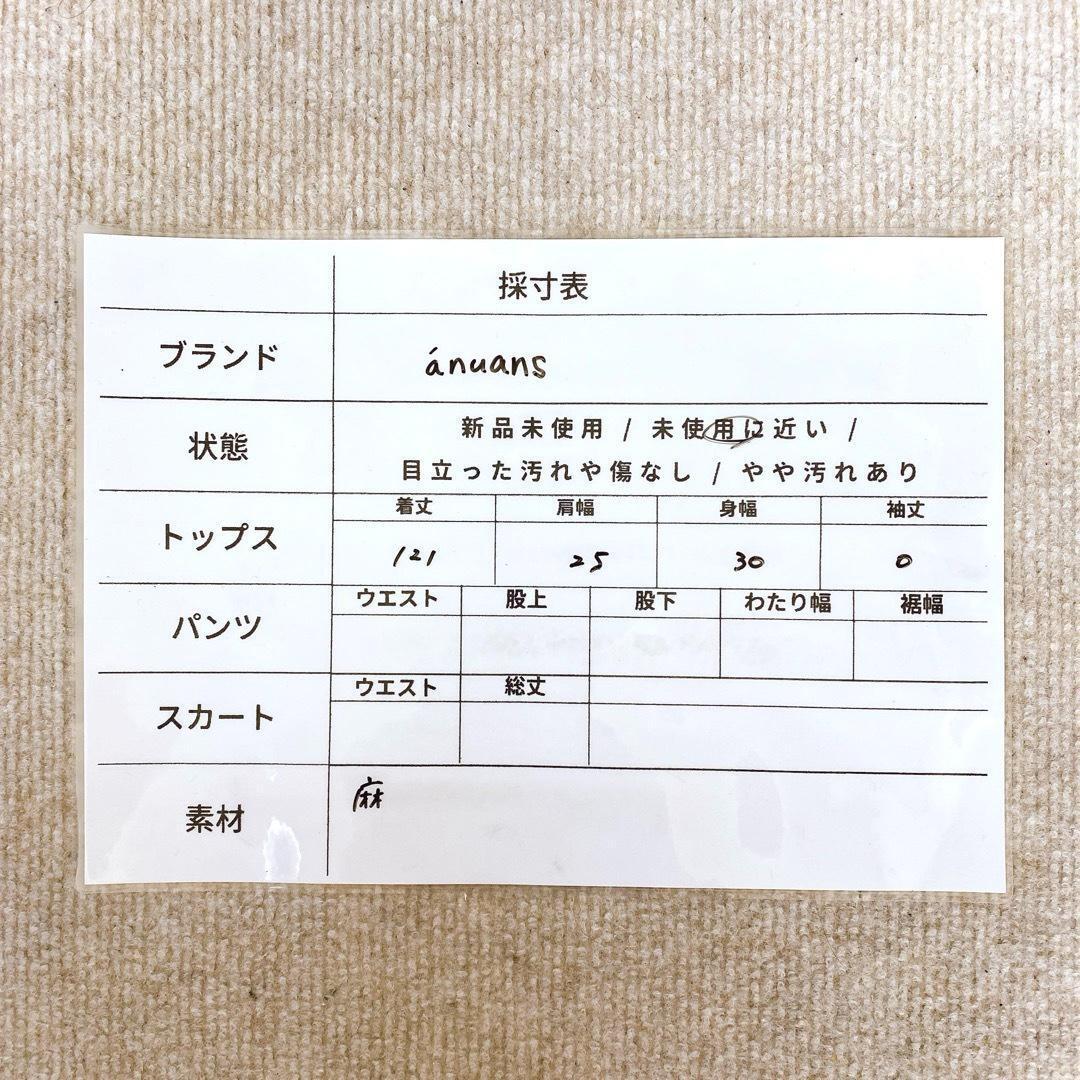 採寸表
ブランド ánuans
状態 新品未使用 / 未使用に近い /
目立った汚れや傷なし / やや汚れあり
トップス 着丈 肩幅 身幅 袖丈
121 25 30 0
パンツ ウエスト 股上 股下 わたり幅 裾幅
スカート ウエスト 総丈
素材 麻